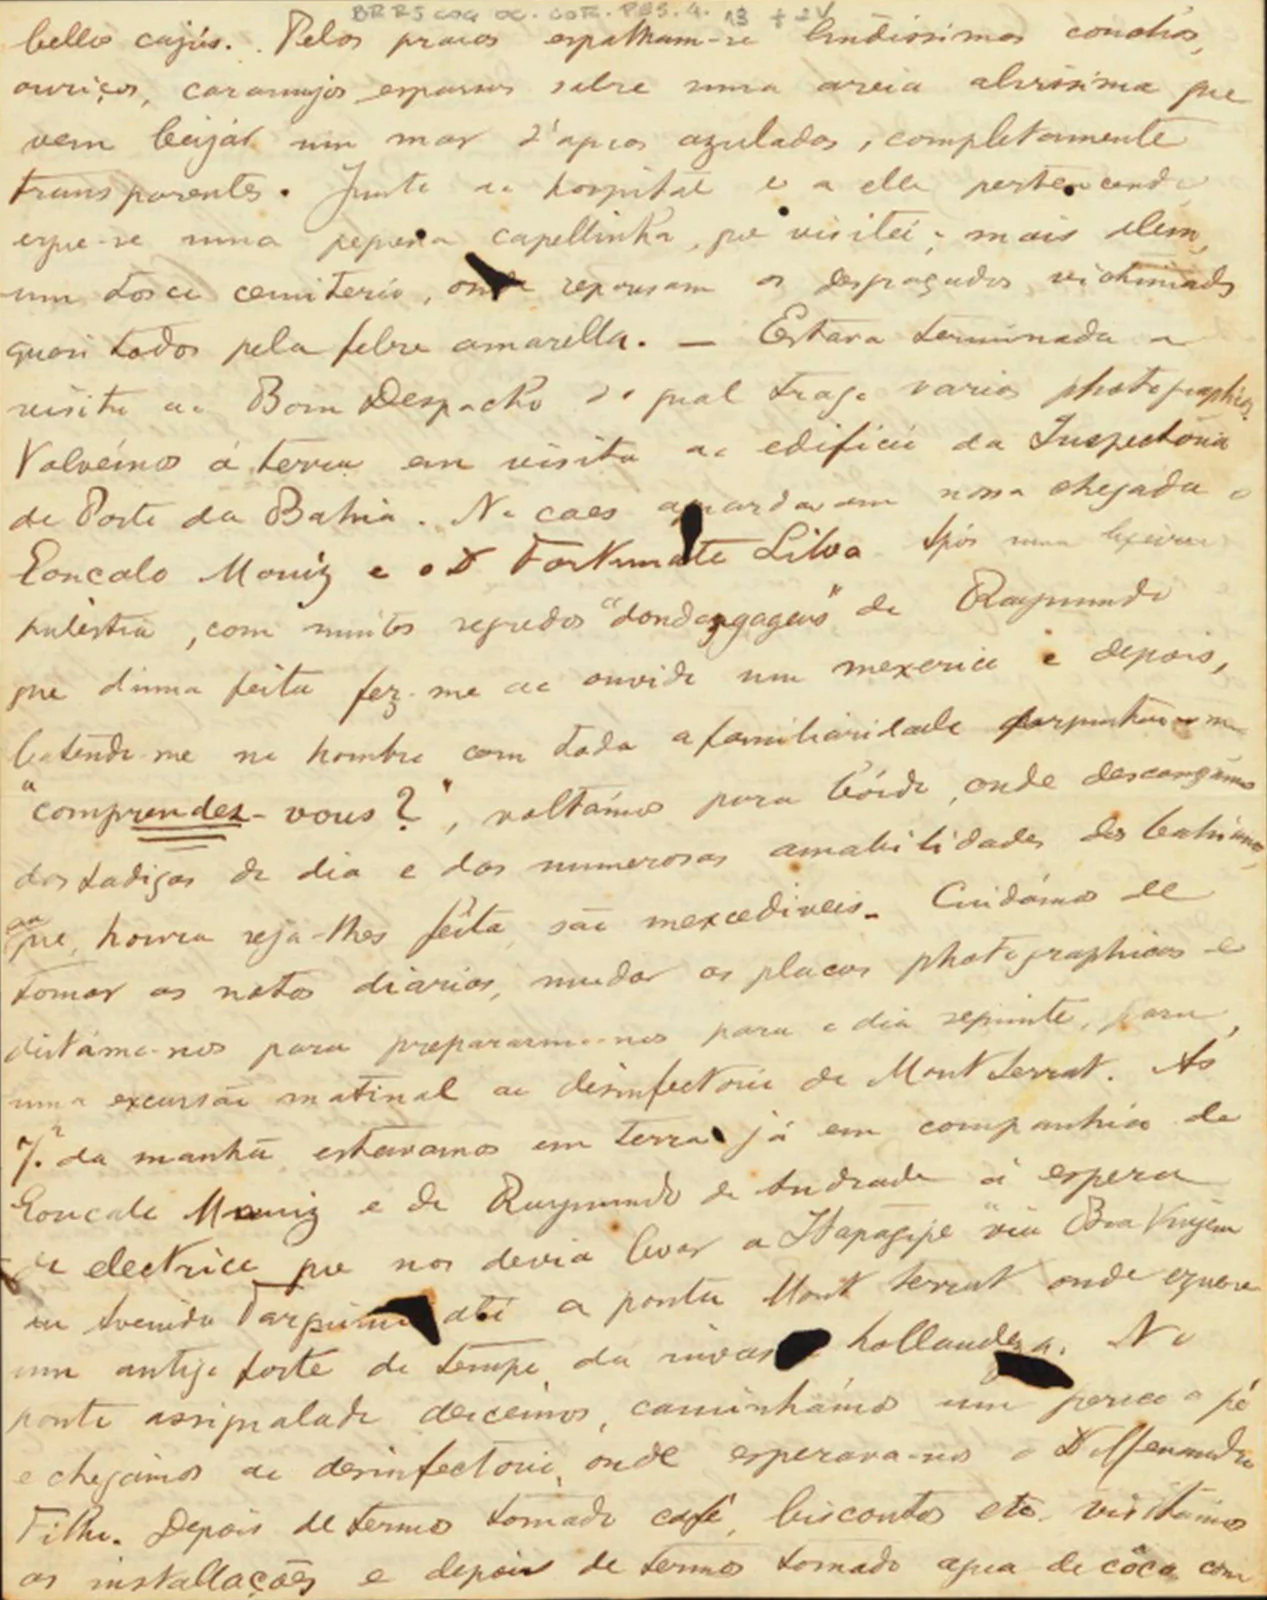 BR RJ COC OC. COR. PES. 4. 13 + 2V
bello cajús. Pelos praias espalham-se lindissimas conchas,
ouriços, caramujos esparsos sobre uma areia alvissima que
vem beijar um mar d'aguas azuladas, completamente
transparentes. Junto ao hospital e a elle pertencendo
ergue-se uma pequena capellinha, que visitei; mais além,
um tosco cemiterio, onde repousam os desgraçados victimados
quasi todos pela febre amarella. — Estava terminada a
visita ao Bom Despacho do qual trago varias photographias.
Volvêmos á terra em visita ao edificio da Inspectoria
de Porto da Bahia. No caes aguardavam nossa chegada o
Goncalo Moniz e o Dr Fortunato Silva. Após uma ligeira
palestra, com muitos segredos de Raymundo
que duma feita fez-me ao ouvido um mexerico e depois,
batendo-me no hombro com toda a familiaridade perguntou-me
"comprendez-vous?", voltámos para bórdo, onde descançámos
das fadigas do dia e das numerosas amabilidades dos bahianos,
que, honra seja-lhes feita, são inexcediveis. Cuidámos de
tomar as notas diarias, mudar as placas photographicas e
deitámo-nos para prepararmo-nos para o dia seguinte, para
uma excursão matinal ao desinfectorio de Mont Serrat. Ás
7h da manhã estavamos em terra já em companhia de
Goncalo Moniz e de Raymundo de Andrade á espera
do electrico que nos devia levar a Itapagipe "via Boa Viagem
ou Avenida até a ponta Mont Serrat onde ergue-se
um antigo forte do tempo da invasão hollandeza. No
ponto assignalado descemos, caminhámos um pouco a pé
e chegámos ao desinfectorio, onde esperava-nos o
Filho. Depois de termos tomado café, biscoutos etc. visitámos
as installações e depois de termos tomado agua de côco com